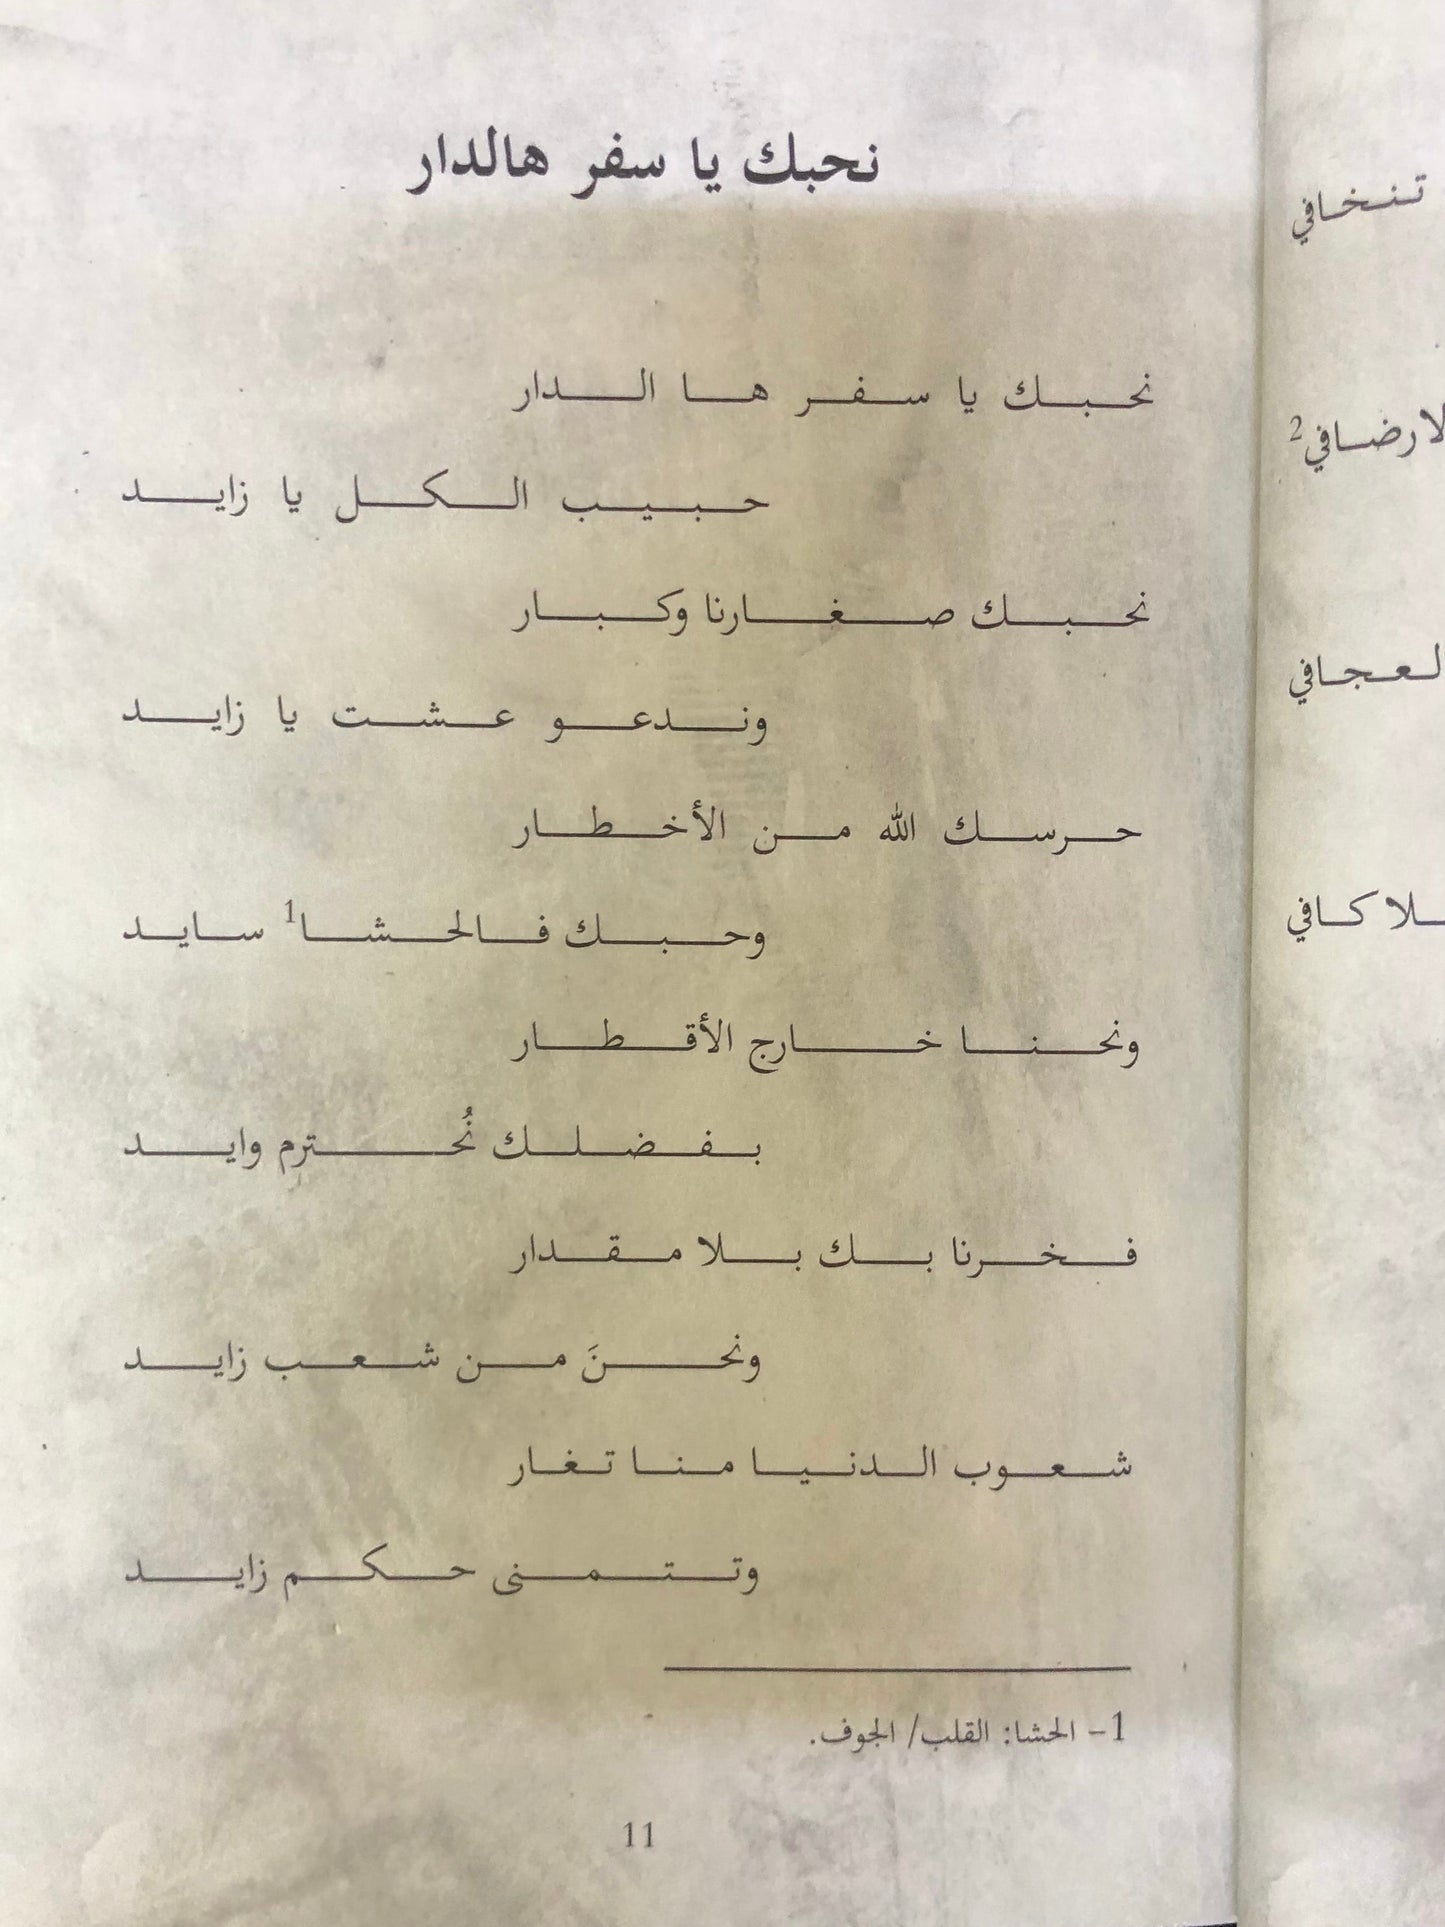 نحبك يا سفر هالدار
نحبك يا سفر ها الدار
حبيب الكل يا زايد
نحبك صغارنا وكبار
وندعو عشت يا زايد
حرسك الله من الأخطار
وحبك فالحشا1 سايد
ونحنا خارج الأقطار
بفضلك نُحترم وايد
فخرنا بك بلا مقدار
ونحنَ من شعب زايد
شعوب الدنيا منا تغار
وتتمنى حكم زايد
1- الحشا: القلب/ الجوف.
11
تنخافي
لارضافي2
لعجافي
كافي